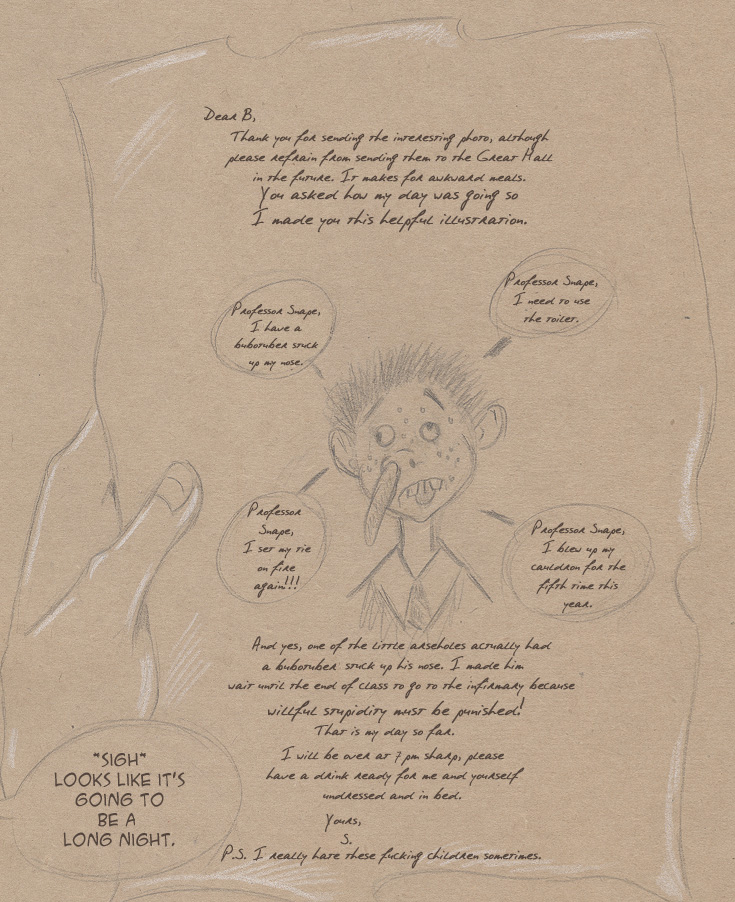 Dear B,
Thank you for sending the interesting photo, although
please refrain from sending them to the Great Hall
in the future. It makes for awkward meals.
You asked how my day was going so
I made you this helpful illustration.
Professor Snape,
I have a
bubotuber stuck
up my nose.
Professor Snape,
I need to use
the toilet.
Professor
Snape,
I set my tie
on fire
again!!!
Professor Snape,
I blew up my
cauldron for the
fifth time this
year.
And yes, one of the little arseholes actually had
a bubotuber stuck up his nose. I made him
wait until the end of class to go to the infirmary because
willful stupidity must be punished!
That is my day so far.
I will be over at 7 pm sharp, please
have a drink ready for me and yourself
undressed and in bed.
Yours,
S.
P.S. I really hate these fucking children sometimes.
*SIGH*
LOOKS LIKE IT'S
GOING TO
BE A
LONG NIGHT.